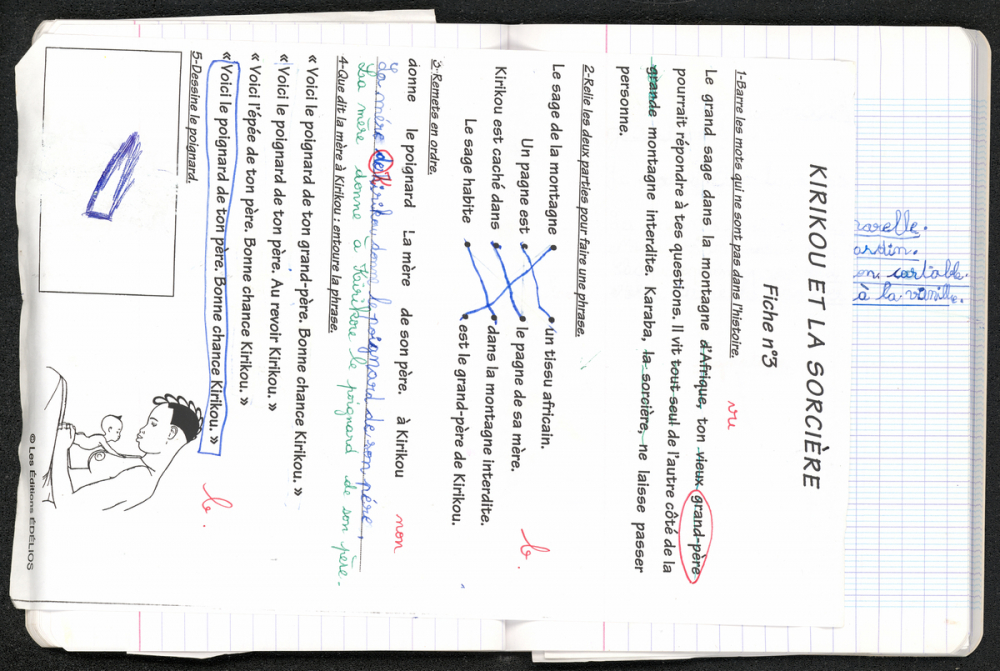 KIRIKOU ET LA SORCIÈRE
Fiche n°3
1-Barre les mots qui ne sont pas dans l'histoire.
vu
Le grand sage dans la montagne d'Afrique, ton vieux grand-père
pourrait répondre à tes questions. Il vit tout seul de l'autre côté de la
grande montagne interdite. Karaba, la sorcière, ne laisse passer
personne.
2-Relie les deux parties pour faire une phrase.
Le sage de la montagne • • un tissu africain.
Un pagne est • • le pagne de sa mère.
Kirikou est caché dans • • dans la montagne interdite.
Le sage habite • • est le grand-père de Kirikou.
b.
3-Remets en ordre.
donne le poignard La mère de son père. à Kirikou
non
La mère de Kirikou donne le poignard de son père.
La mère donne à Kirikou le poignard de son père.
4-Que dit la mère à Kirikou : entoure la phrase.
« Voici le poignard de ton grand-père. Bonne chance Kirikou. »
« Voici le poignard de ton père. Au revoir Kirikou. »
« Voici l'épée de ton père. Bonne chance Kirikou. »
« Voici le poignard de ton père. Bonne chance Kirikou. »
b.
5-Dessine le poignard.
© Les Éditions ÉDÉLIOS
arelle.
ardin.
on cartable.
à la vanille.